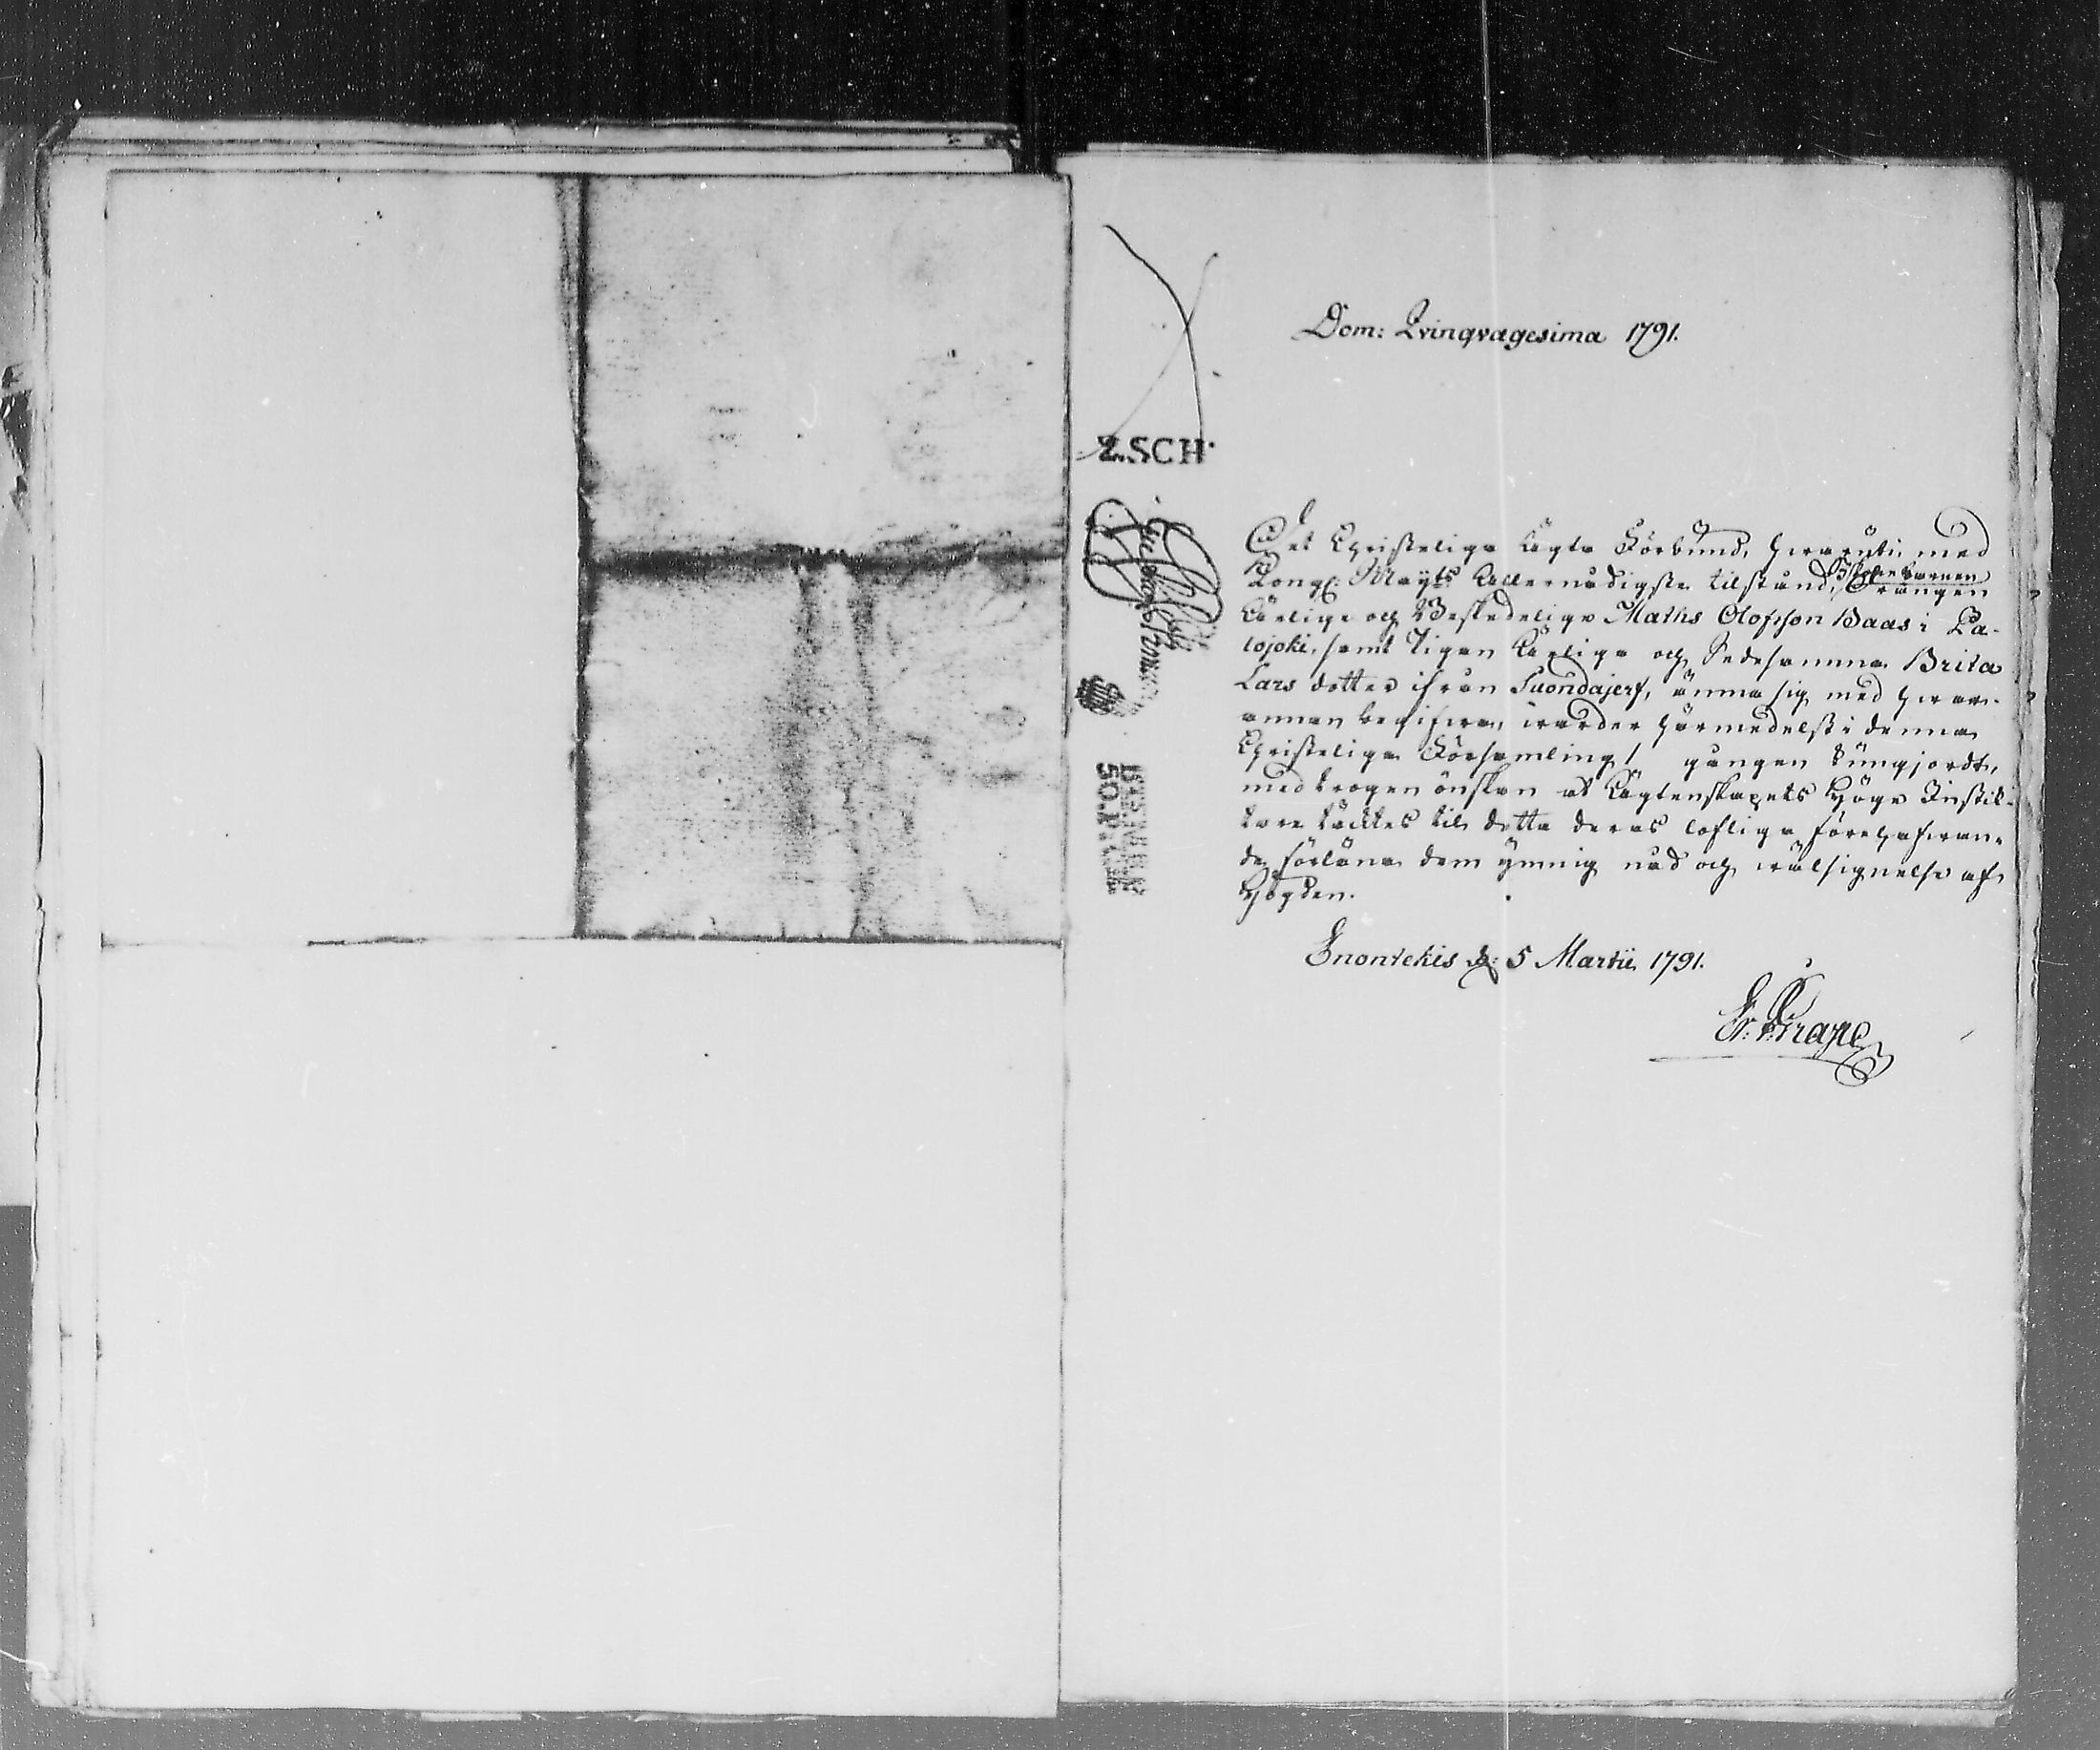 Dom: Qvinqvagesima 1791.
2.SCH.
Det Christeliga Ägta Förbund, hwaruti med
Kongl: Maÿts Allernådigste tilstånd, Drängen
Ärlige och Beskedelige Maths Olofsson Baas i Pa-
lojoki, samt Pigan Ärliga och Sedesamma Brita
Lars dotter ifrån Suondajerf, ämna sig med hwar-
annan begifwa, warder härmedelst i denna
Christeliga Församling 1 gången kungjordt,
med trogen önskan at Ägtenskapets Höge Instik-
tare täcktes til detta deras lofliga förehafwan-
de förläna dem ÿmnig nåd och wälsignelse af
Högden.
Enontekis d: 5 Martii 1791.
E: Grape